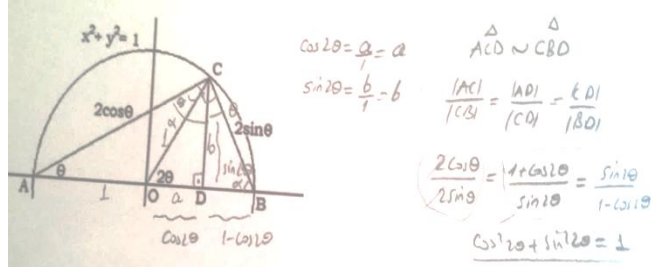 x²+y²=1
C
2cosθ
2sinθ
θ
α
θ
1
b
sin2θ
A
θ
2θ
α
1
O
a
D
B
cos2θ
1-cos2θ
cos2θ = a/1 = a
sin2θ = b/1 = b
ACD ~ CBD
|AC|/|CB| = |AD|/|CD| = |CD|/|BD|
2cosθ/2sinθ = 1+cos2θ/sin2θ = sin2θ/1-cos2θ
cos²2θ + sin²2θ = 1